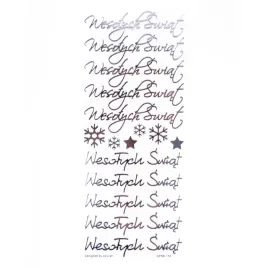 Wesołych Świąt
Wesołych Świąt
Wesołych Świąt
Wesołych Świąt
Wesołych Świąt
Wesołych Świąt
Wesołych Świąt
Wesołych Świąt
Wesołych Świąt
Wesołych Świąt